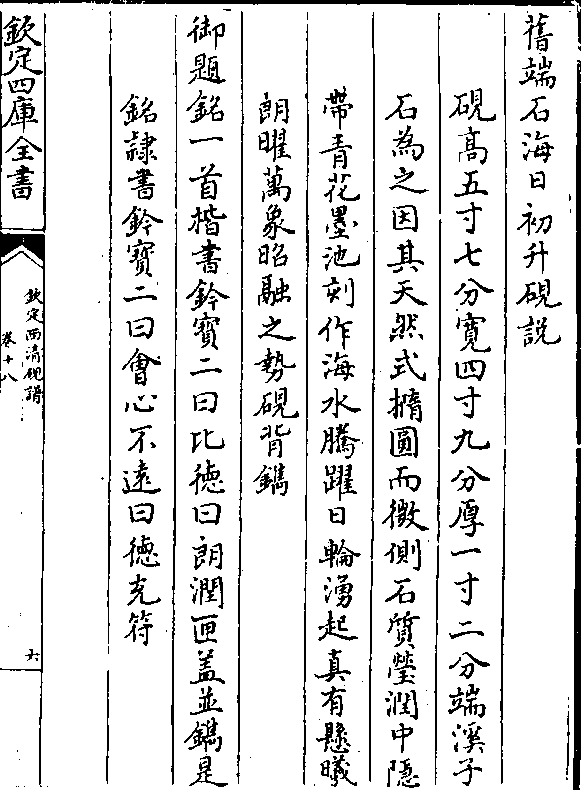 舊端石海日初升硯說
硯高五寸七分寬四寸九分厚一寸二分端溪子
石為之因其天然式橢圓而微側石質瑩潤中隱
帶青花墨池刻作海水騰躍日輪湧起真有懸曦
朗曜萬象昭融之勢硯背鐫
御題銘一首楷書鈐寶二曰比德曰朗潤匣蓋並鐫是
銘隸書鈐寶二曰會心不遠曰德充符
欽定四庫全書
欽定西清硯譜
卷十八
六